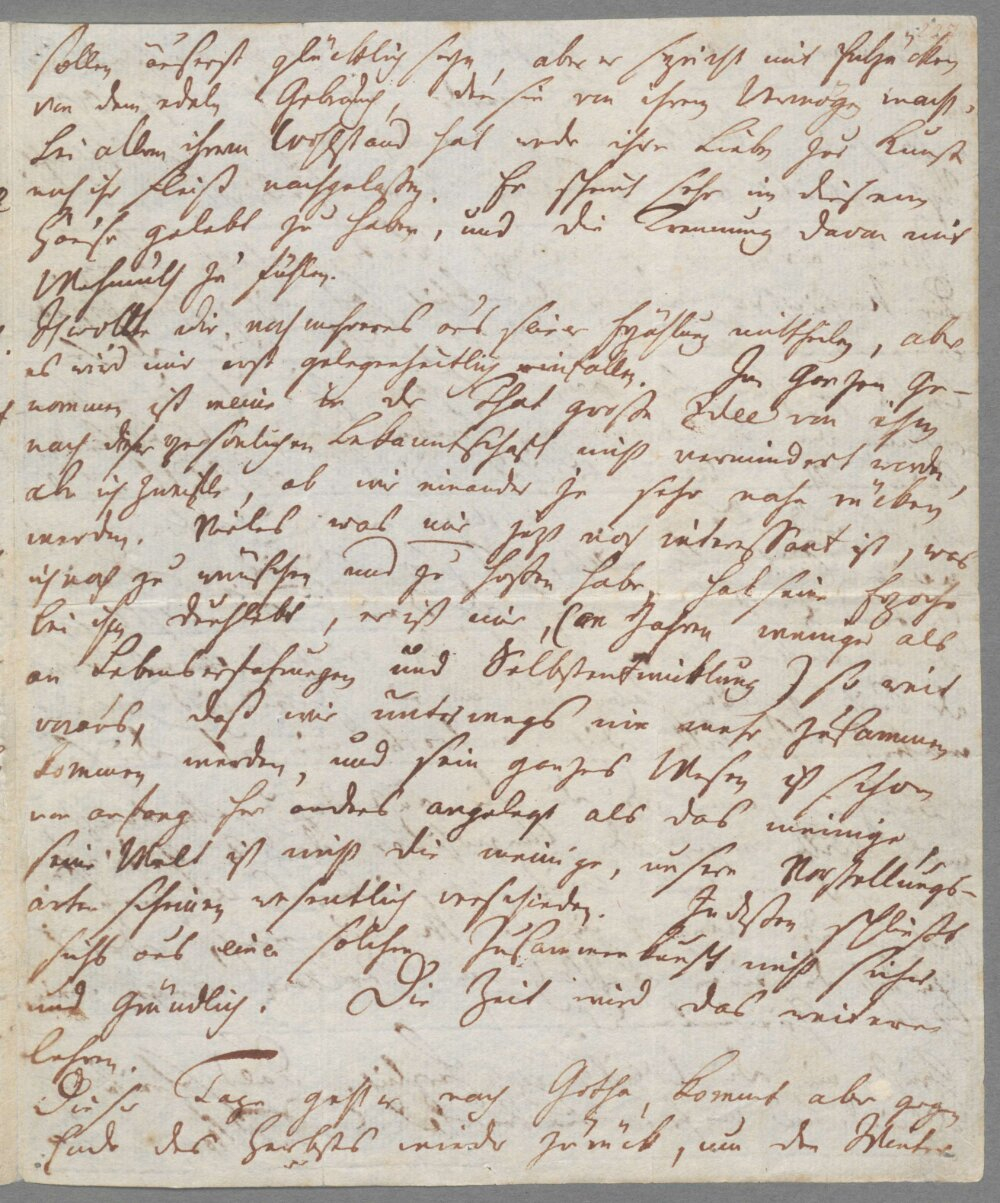 sollen äuserst glücklich seyn, aber er spricht mit Entzücken
von dem edeln Gebrauch, den sie von ihrem Vermögen macht.
Bei allem ihrem Wohlstand hat weder ihre Liebe zur Kunst
noch ihr Fleiß nachgelaßen. Er scheint sehr in diesem
Hause gelebt zu haben, und die Trennung davon mit
Wehmuth zu fühlen.
Ich wollte dir noch mehreres aus seiner Erzählung mittheilen, aber
es wird mir erst gelegenheitlich einfallen. Im Ganzen ge-
nommen ist meine in der That große Idee von ihm
nach dieser persönlichen Bekanntschaft nicht vermindert worden,
aber ich zweifle, ob wir einander je sehr nahe rücken
werden. Vieles was mir jetzt noch interessant ist, was
ich noch zu wünschen und zu hoffen habe, hat seine Epoche
bei ihm durchlebt, er ist mir, (an Jahren weniger als
an Lebenserfahrungen und Selbstentwicklung) so weit
voraus, daß wir unterwegs nie mehr zusammen
kommen werden, und sein ganzes Wesen ist schon
von anfang her anders angelegt als das meinige,
seine Welt ist nicht die meinige, unsere Vorstellungs-
arten scheinen wesentlich verschieden. Indeßen schließt
sichs aus einer solchen Zusammenkunft nicht sicher
und gründlich. Die Zeit wird das weitere
lehren.
Dieser Tage geht er nach Gotha, kommt aber gegen
Ende des Herbsts wieder zurück, um den Winter